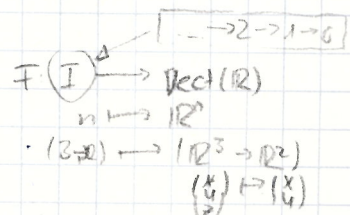 ... → 2 → 1 → 0
F I → Vect(ℝ)
n ↦ ℝⁿ
(3→2) ↦ (ℝ³ → ℝ²)
(x y z) ↦ (x y)